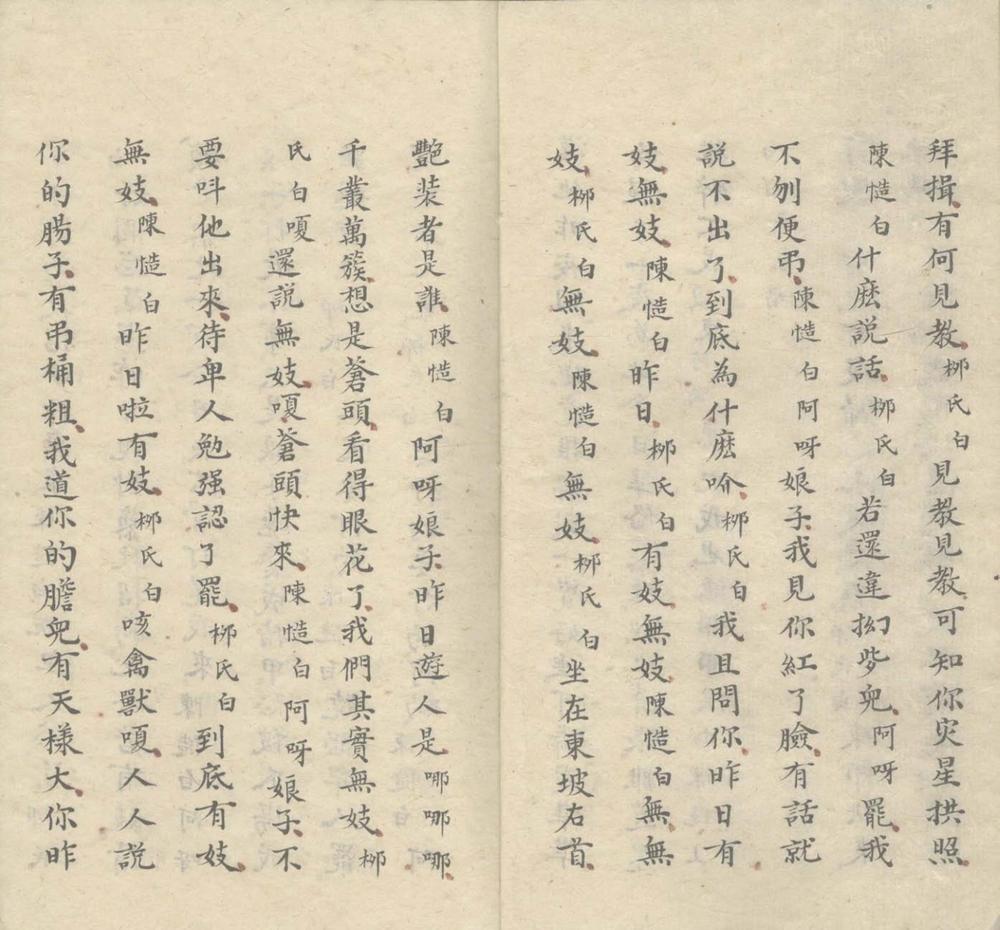 拜揖有何見教栁氏白見教見教可知你灾星拱照
陳慥白什麽説話栁氏白若還違拗㱔兒阿呀罷我
不刎便弔陳慥白阿呀娘子我見你紅了臉有話就
說不出了到底為什麽吤栁氏白我且問你昨日有
妓無妓陳慥白昨日栁氏白有妓無妓陳慥白無無
妓栁氏白無妓陳慥白無妓栁氏白坐在東坡右首
艷装者是誰陳慥白阿呀娘子昨日遊人是哪哪哪
千叢萬簇想是蒼頭看得眼花了我們其實無妓栁
氏白嗄還説無妓嗄蒼頭快來陳慥白阿呀娘子不
要呌他出來待卑人勉强認了罷栁氏白到底有妓
無妓陳慥白昨日啦有妓栁氏白咳禽獸嗄人人説
你的腸子有弔桶粗我道你的膽兒有天樣大你昨